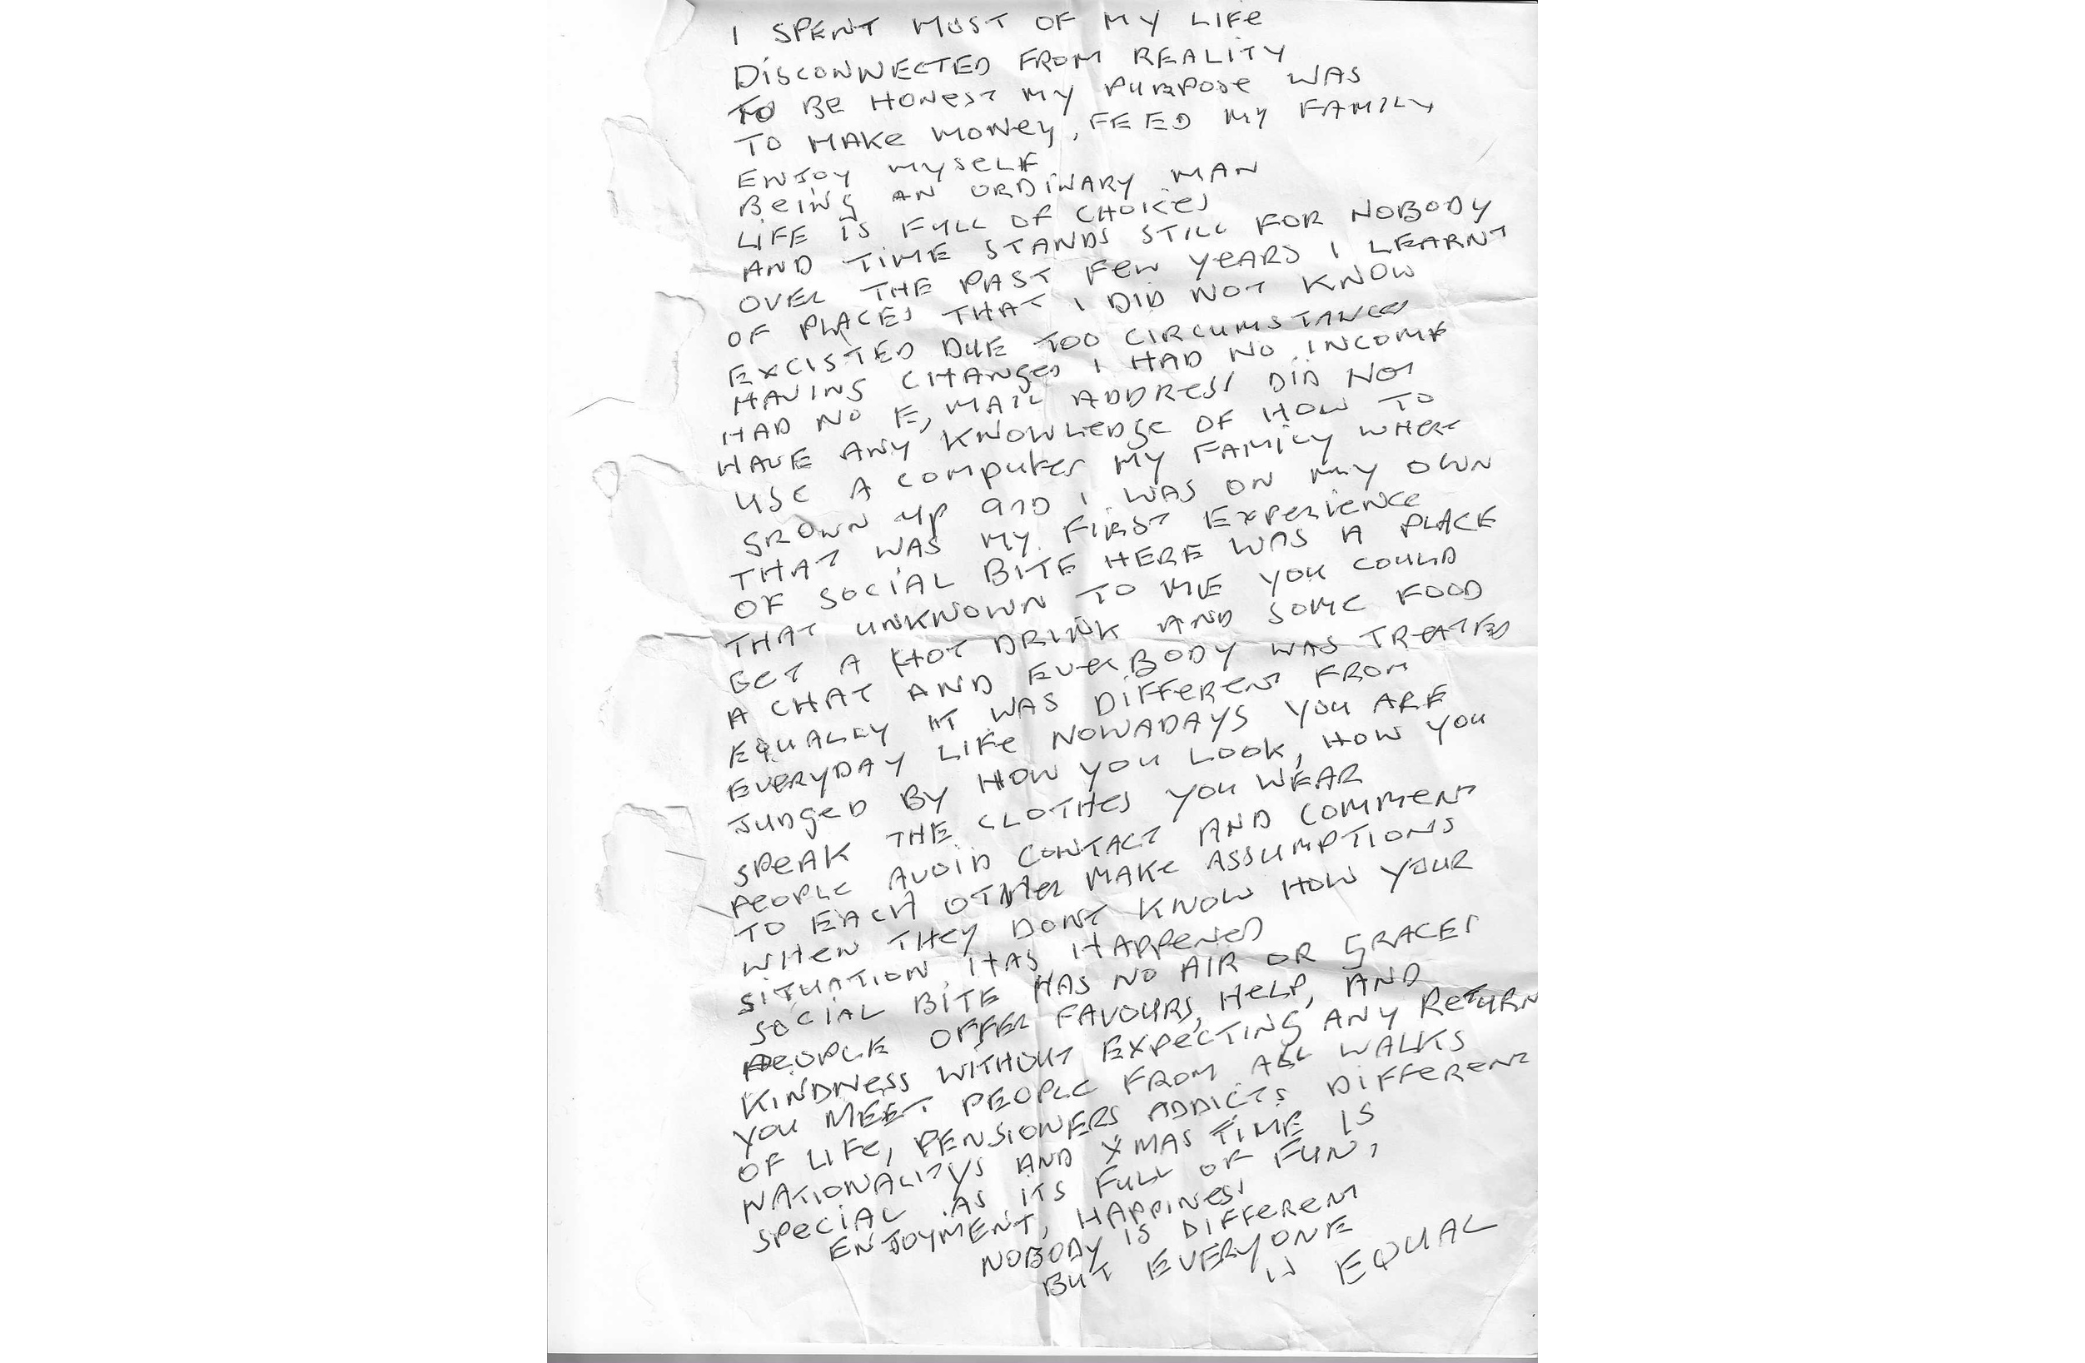 I SPENT MOST OF MY LIFE
DISCONNECTED FROM REALITY
TO BE HONEST MY PURPOSE WAS
TO MAKE MONEY, FEED MY FAMILY
ENJOY MYSELF
BEING AN ORDINARY MAN
LIFE IS FULL OF CHOICES
AND TIME STANDS STILL FOR NOBODY
OVER THE PAST FEW YEARS I LEARNT
OF PLACES THAT I DID NOT KNOW
EXCISTED DUE TOO CIRCUMSTANCES
HAVING CHANGED I HAD NO INCOME
HAD NO E, MAIL ADDRESS DID NOT
HAVE ANY KNOWLEDGE OF HOW TO
USE A COMPUTER MY FAMILY WHERE
GROWN UP AND I WAS ON MY OWN
THAT WAS MY FIRST EXPERIENCE
OF SOCIAL BITE HERE WAS A PLACE
THAT UNKNOWN TO ME YOU COULD
GET A HOT DRINK AND SOME FOOD
A CHAT AND EVERBODY WAS TREATED
EQUALLY IT WAS DIFFERENT FROM
EVERYDAY LIFE NOWADAYS YOU ARE
JUDGED BY HOW YOU LOOK, HOW YOU
SPEAK THE CLOTHES YOU WEAR
PEOPLE AVOID CONTACT AND COMMENT
TO EACH OTHER MAKE ASSUMPTIONS
WHEN THEY DONT KNOW HOW YOUR
SITUATION HAS HAPPENED
SOCIAL BITE HAS NO AIR OR GRACES
PEOPLE OFFER FAVOURS, HELP, AND
KINDNESS WITHOUT EXPECTING ANY RETURN
YOU MEET PEOPLE FROM ALL WALKS
OF LIFE, PENSIONERS ADDICTS DIFFERENT
NATIONALITYS AND XMAS TIME IS
SPECIAL AS ITS FULL OF FUN,
ENJOYMENT, HAPPINESS
NOBODY IS DIFFERENT
BUT EVERYONE
IS EQUAL